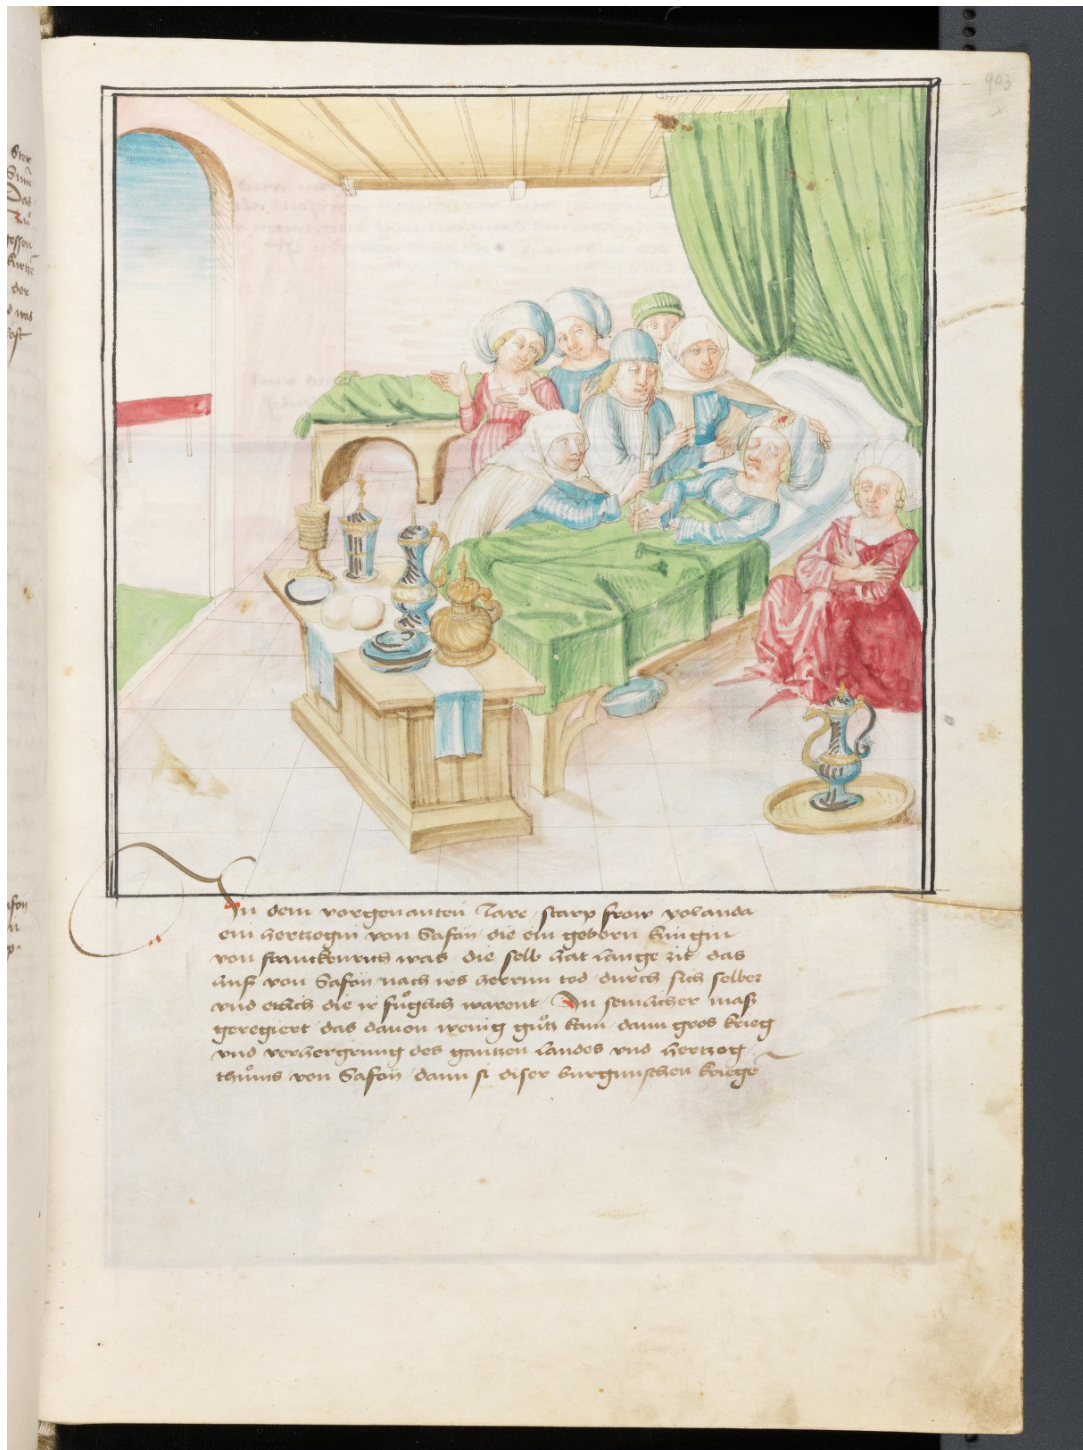 903
In dem vorgenanten Jare / starp frow yolanda
ein hertzogin von Safoy / die ein geborn künigin
von franckenrich was / die selb hat lange zit / das
huß von Safoy / nach irs herrnn tod / durch sich selber
vnd ettlich die ir fuͦglich warent / In semlicher maß
geregiert / das dauon wenig guͦtz kam / dann gros krieg
vnd verhergrung des gantzen landes vnd hertzog
thuͦms von Safoy / dann si diser burgunschen kriege